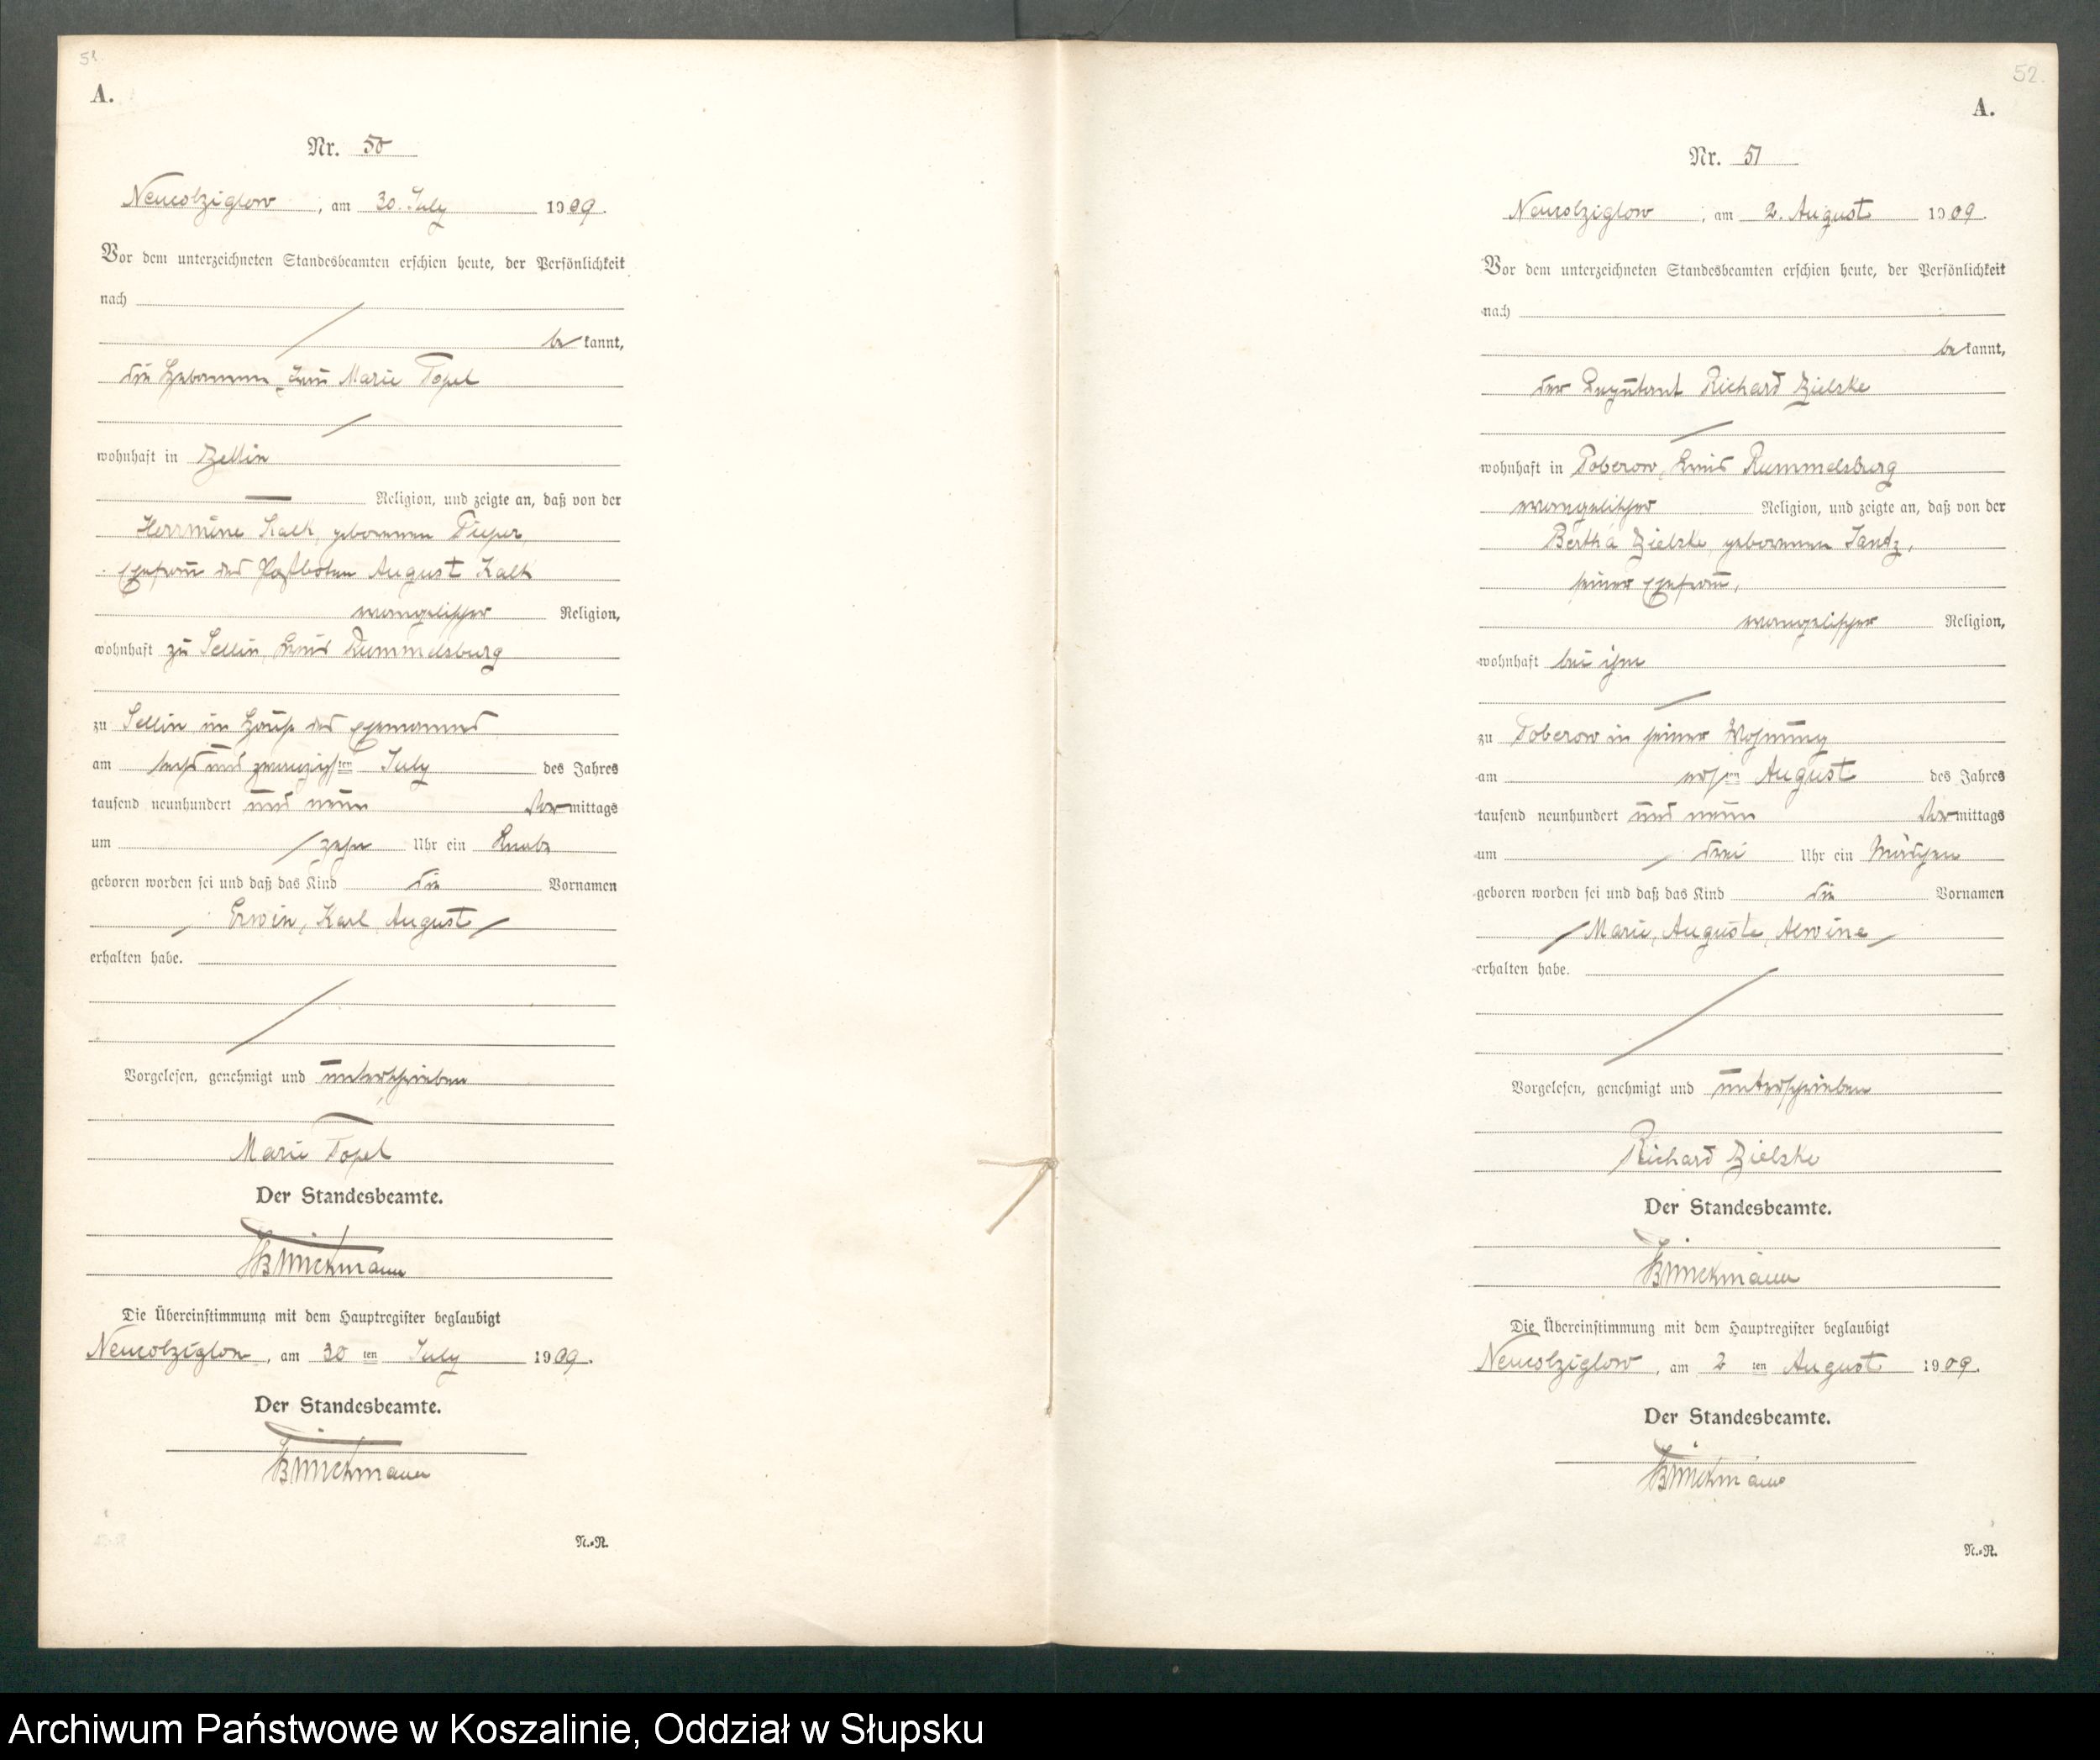 51
A.
Nr. 50
Neucolziglow, am 30. July 1909.
Vor dem unterzeichneten Standesbeamten erschien heute, der Persönlichkeit
nach
bekannt,
die Hebamme Frau Marie Topel
wohnhaft in Zettin
Religion, und zeigte an, daß von der
Herrmine Kalk, geborenen Pieper,
Ehefrau des Postboten August Kalk
evangelischer Religion,
wohnhaft zu Sellin, Kreis Rummelsburg
zu Sellin im Hause des Ehemannes
am sechs und zwanzigsten July des Jahres
tausend neunhundert und neun Vormittags
um zehn Uhr ein Knabe
geboren worden sei und daß das Kind die Vornamen
Erwin, Karl, August
erhalten habe.
Vorgelesen, genehmigt und unterschrieben
Marie Topel
Der Standesbeamte.
Brinckmann
Die Übereinstimmung mit dem Hauptregister beglaubigt
Neucolziglow, am 30 ten July 1909.
Der Standesbeamte.
Brinckmann
N.-R.
52.
A.
Nr. 51
Neucolziglow, am 2. August 1909.
Vor dem unterzeichneten Standesbeamten erschien heute, der Persönlichkeit
nach
bekannt,
der Deputant Richard Zielske
wohnhaft in Poberow, Kreis Rummelsburg
evangelischer Religion, und zeigte an, daß von der
Bertha Zielske, geborenen Jantz,
seiner Ehefrau,
evangelischer Religion,
wohnhaft bei ihm
zu Poberow in seiner Wohnung
am ersten August des Jahres
tausend neunhundert und neun Vormittags
um drei Uhr ein Mädchen
geboren worden sei und daß das Kind die Vornamen
Marie, Auguste, Alwine
erhalten habe.
Vorgelesen, genehmigt und unterschrieben
Richard Zielske
Der Standesbeamte.
Brinckmann
Die Übereinstimmung mit dem Hauptregister beglaubigt
Neucolziglow, am 2 ten August 1909.
Der Standesbeamte.
Brinckmann
N.-R.
Archiwum Państwowe w Koszalinie, Oddział w Słupsku